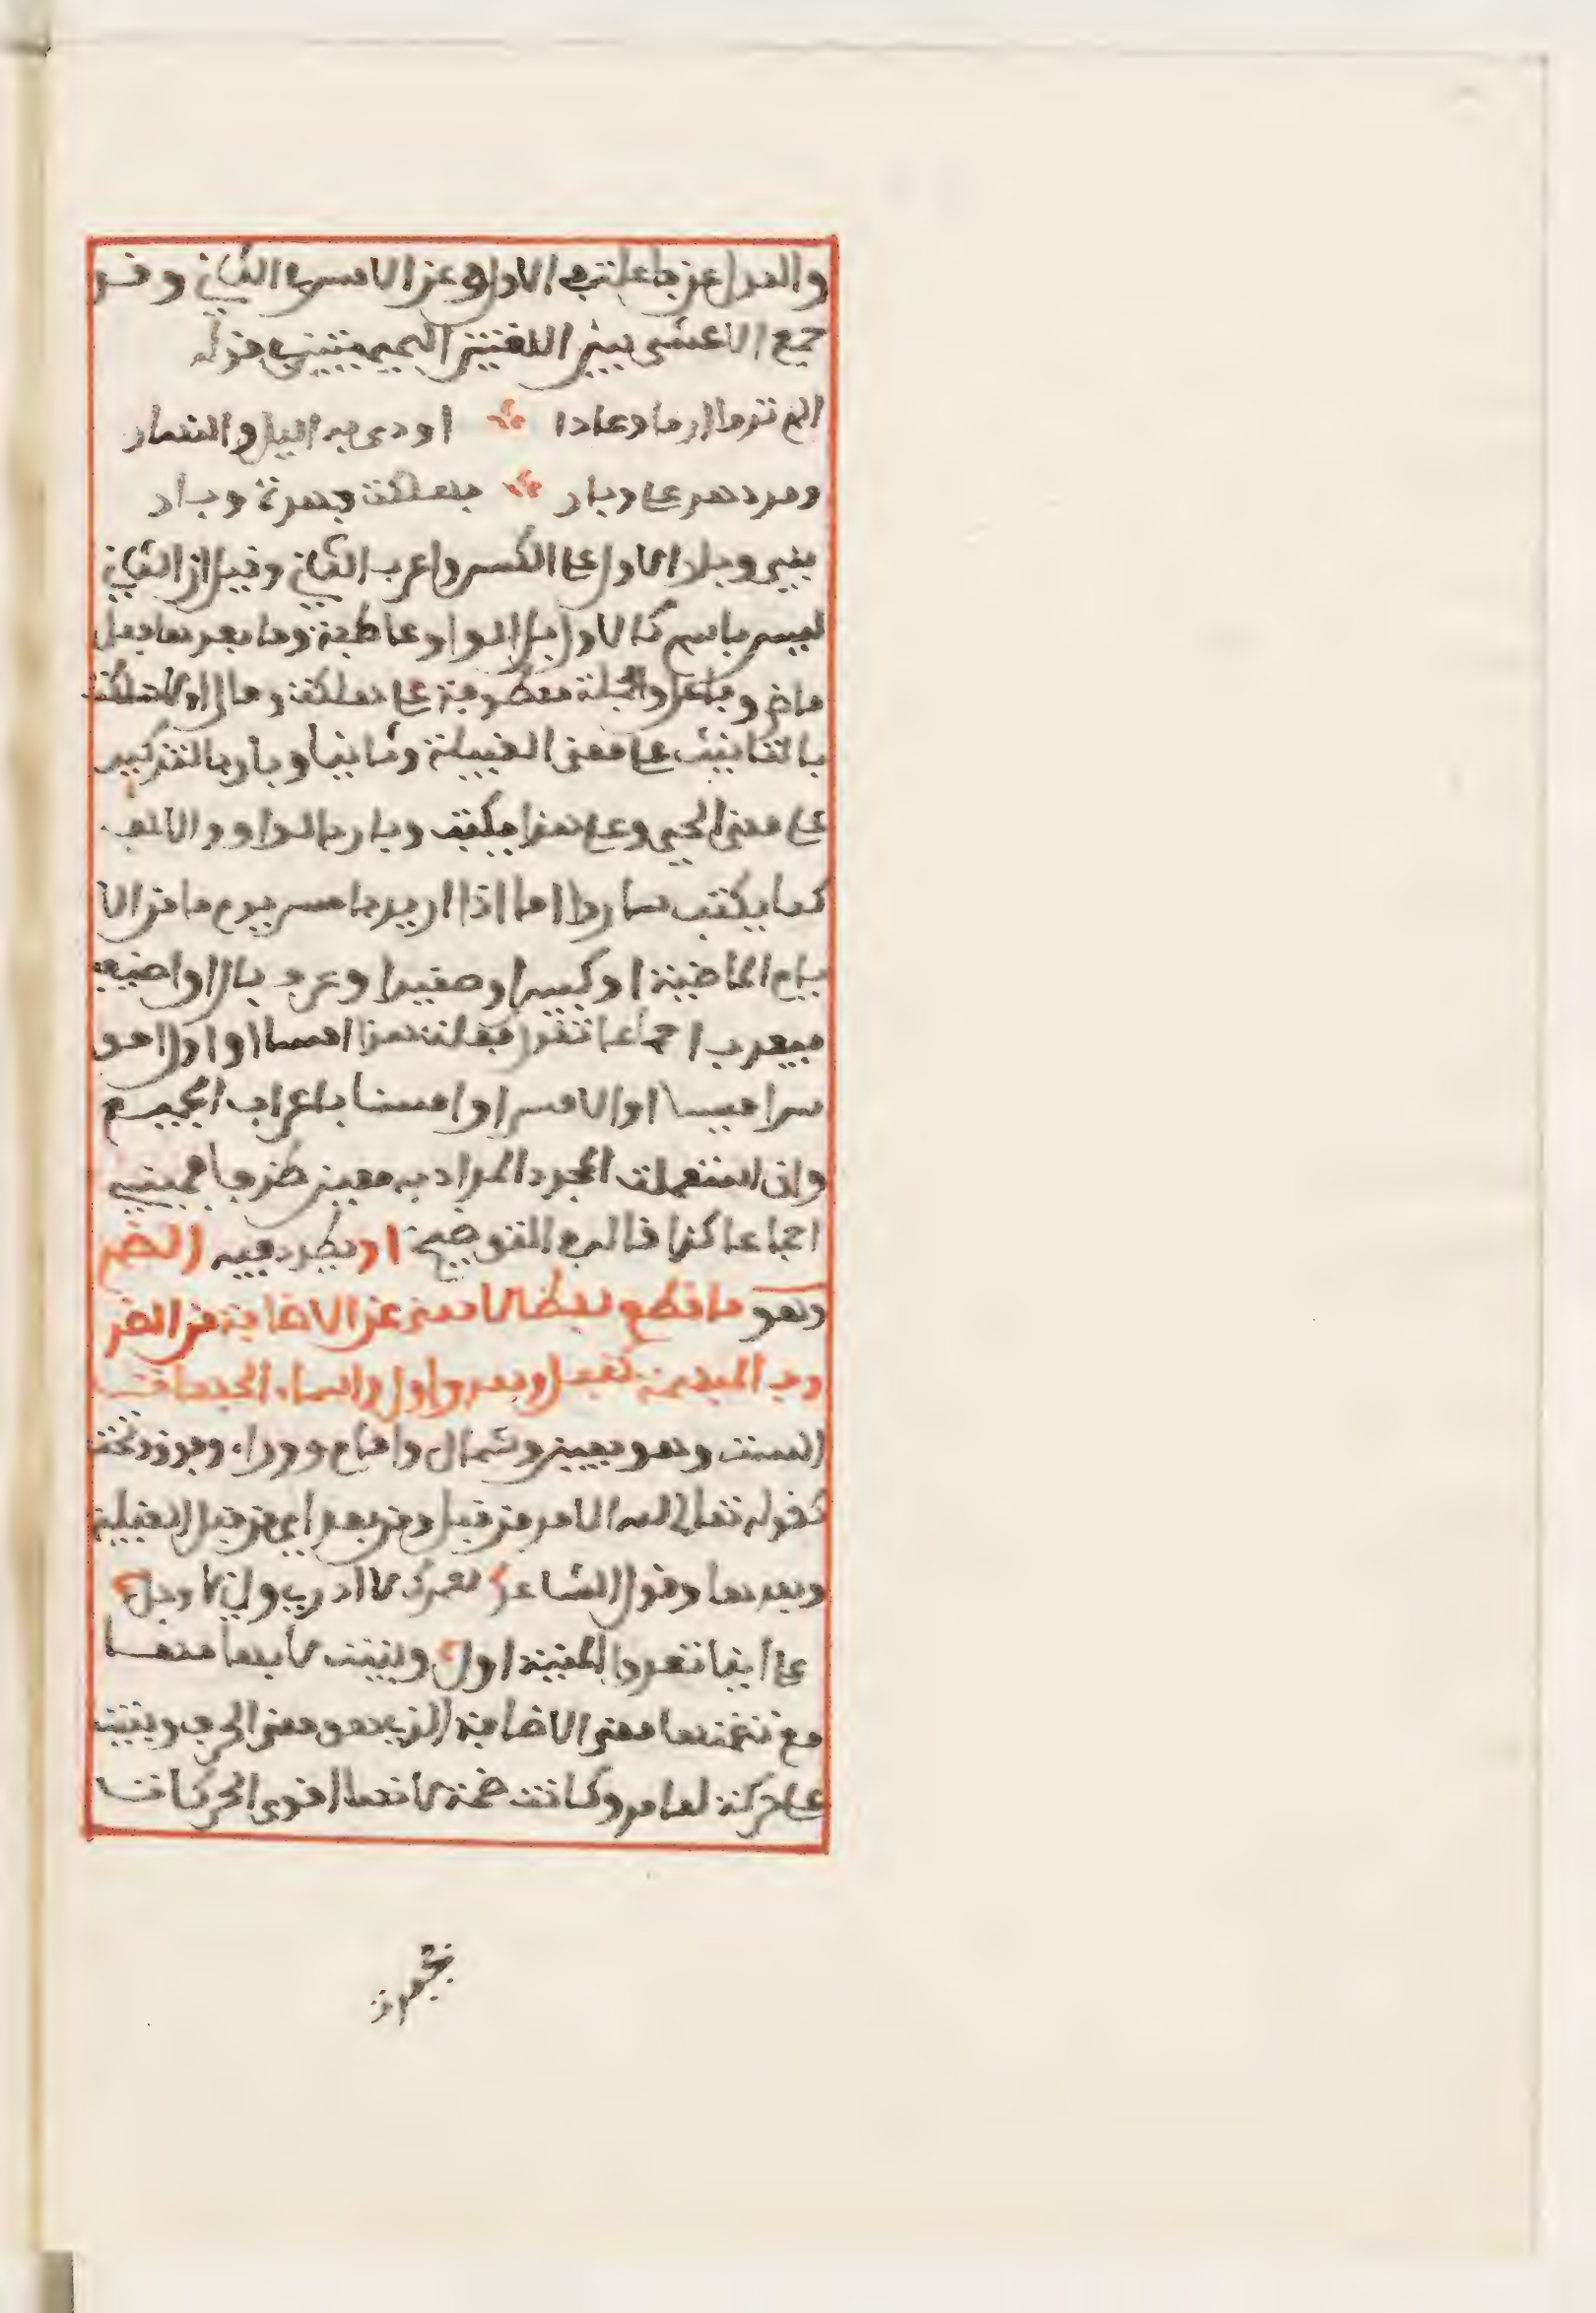 والعدل عن فاعلة في الاول وعن الامس في الثاني وقد
جمع الاعشى بين اللغتين التميميتين في قوله
الم تروا ارما وعادا اودى بها الليل والنهار
ومر دهر على وبار فهلكت جهرة وبار
فبنى وبار الاول على الكسر واعرب الثاني وقيل ان الثاني
ليس باسم كالاول بل الواو عاطفة وما بعدها فعل
ماض وفاعل والجملة معطوفة على هلكت وقال اولا هلكت
بالتانيث على معنى القبيلة وثانيا وباروا بالتذكير
على معنى الحي وعلى هذا فيكتب وباروا بالواو والالف
كما يكتب ساروا اما اذا اريد بامس يوم ما من الا
يام الماضية او كسر او صغر او عرف بال او اضيف
فيعرب اجماعا تقول فعلت هذا امسا او اول امو
س او اميسا او الامس او امسنا باعراب الجميع
وان استعملت المجرد المراد به معين ظرفا فمبني
اجماعا كذا قال في التوضيح او يطرد فيه الضم
وهو ما قطع لفظا لا معنى عن الاضافة من الظر
وف المبهمة كقبل وبعد واول واسماء الجهات
الست وهو يمين وشمال وامام ووراء وفوق وتحت
كقوله تعالى لله الامر من قبل ومن بعد اي من قبل الغلبة
وبعدها وقول الشاعر لعمرك لا ادري واني لاوجل
على اينا تعدوا المنية اول وبنيت لابهامها
مع تضمنها معنى الاضافة الذي هو معنى الحرف وبنيت
على حركة لما مر وكانت ضمة لانها اقوى الحركات